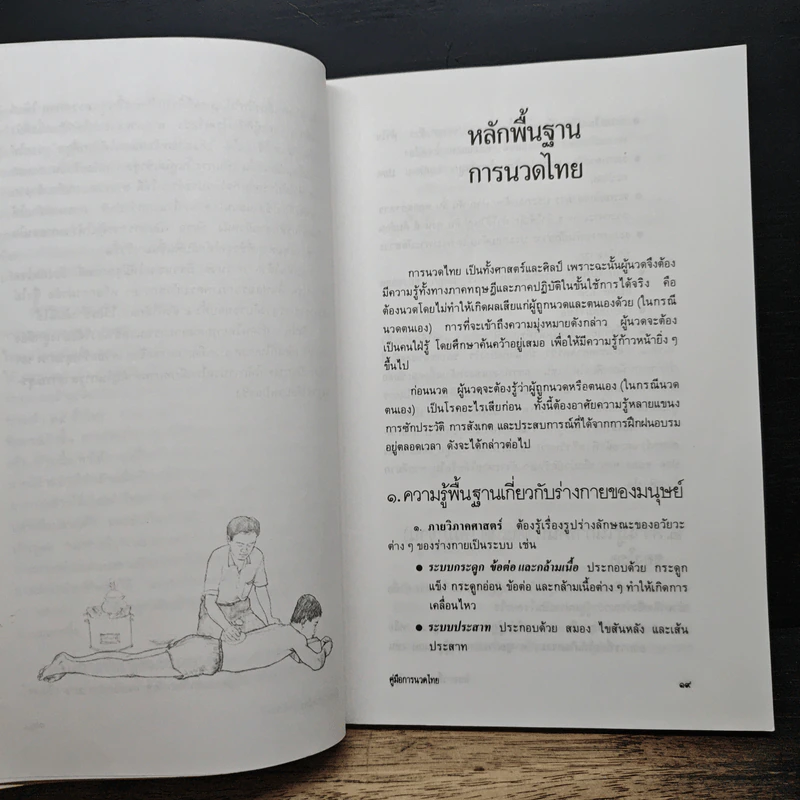 หลักพื้นฐาน
การนวดไทย
การนวดไทย เป็นทั้งศาสตร์และศิลป์ เพราะฉะนั้นผู้นวดจึงต้อง
มีความรู้ทั้งทางภาคทฤษฎีและภาคปฏิบัติในขั้นใช้การได้จริง คือ
ต้องนวดโดยไม่ทำให้เกิดผลเสียแก่ผู้ถูกนวดและตนเองด้วย (ในกรณี
นวดตนเอง) การที่จะเข้าถึงความมุ่งหมายดังกล่าว ผู้นวดจะต้อง
เป็นคนใฝ่รู้ โดยศึกษาค้นคว้าอยู่เสมอ เพื่อให้มีความรู้ก้าวหน้ายิ่ง ๆ
ขึ้นไป
ก่อนนวด ผู้นวดจะต้องรู้ว่าผู้ถูกนวดหรือตนเอง (ในกรณีนวด
ตนเอง) เป็นโรคอะไรเสียก่อน ทั้งนี้ต้องอาศัยความรู้หลายแขนง
การซักประวัติ การสังเกต และประสบการณ์ที่ได้จากการฝึกฝนอบรม
อยู่ตลอดเวลา ดังจะได้กล่าวต่อไป
๑. ความรู้พื้นฐานเกี่ยวกับร่างกายของมนุษย์
๑. ภายวิภาคศาสตร์ ต้องรู้เรื่องรูปร่างลักษณะของอวัยวะ
ต่าง ๆ ของร่างกายเป็นระบบ เช่น
● ระบบกระดูก ข้อต่อ และกล้ามเนื้อ ประกอบด้วย กระดูก
แข็ง กระดูกอ่อน ข้อต่อ และกล้ามเนื้อต่าง ๆ ทำให้เกิดการ
เคลื่อนไหว
● ระบบประสาท ประกอบด้วย สมอง ไขสันหลัง และเส้น
ประสาท
คู่มือการนวดไทย
๑๙